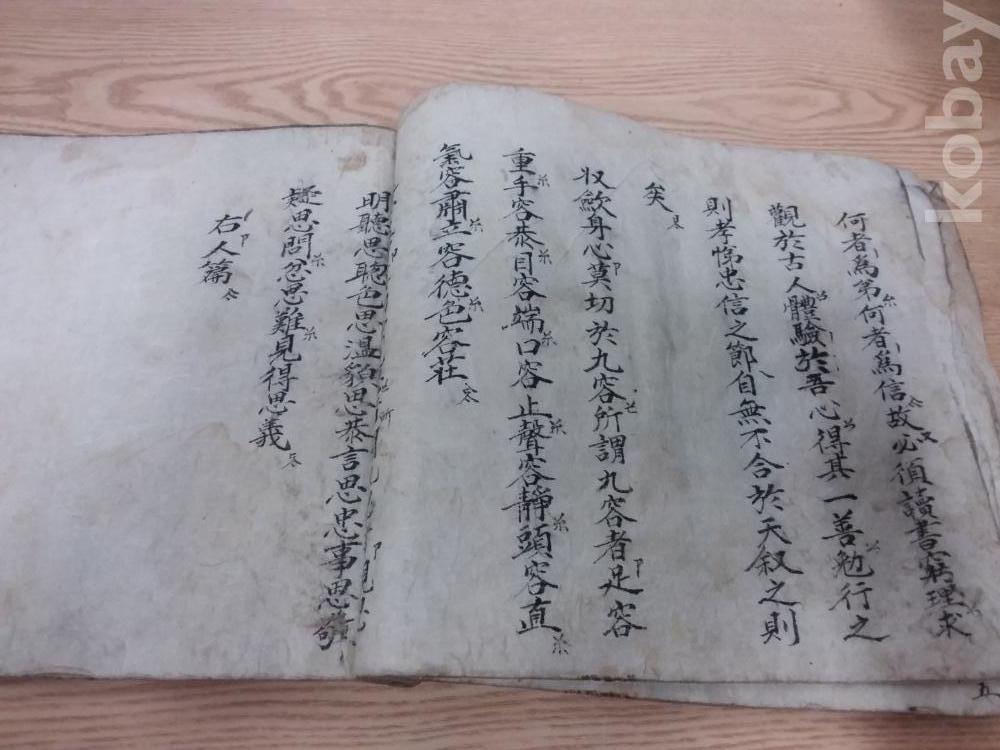 何者爲弟何者爲信故必須讀書窮理求
觀於古人體驗於吾心得其一善勉行之
則孝悌忠信之節自無不合於天叙之則
矣
収斂身心莫切於九容所謂九容者足容
重手容恭目容端口容止聲容靜頭容直
氣容肅立容德色容莊
明聽思聰色思溫貌思恭言思忠事思敬
疑思問忿思難見得思義
右人篇
五
kobay